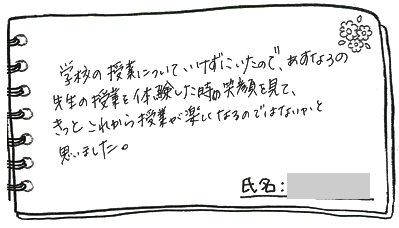 学校の授業について、いけずにいたので、あすなろの
先生の授業を体験した時の笑顔を見て、
きっとこれから授業が楽しくなるのではないかと
思いました。
氏名: